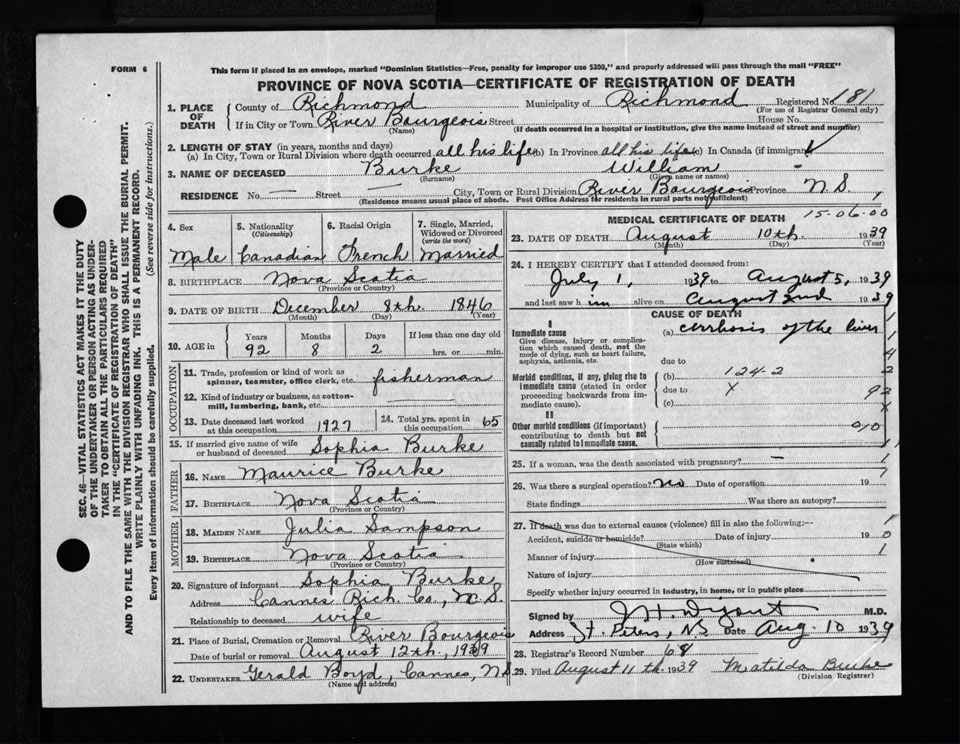 FORM 6
This form if placed in an envelope, marked "Dominion Statistics—Free, penalty for improper use $300," and properly addressed will pass through the mail "FREE"
PROVINCE OF NOVA SCOTIA—CERTIFICATE OF REGISTRATION OF DEATH
SEC. 46—VITAL STATISTICS ACT MAKES IT THE DUTY
OF THE UNDERTAKER OR PERSON ACTING AS UNDER-
TAKER TO OBTAIN ALL THE PARTICULARS REQUIRED
IN THE "CERTIFICATE OF REGISTRATION OF DEATH"
AND TO FILE THE SAME WITH THE DIVISION REGISTRAR WHO SHALL ISSUE THE BURIAL PERMIT.
WRITE PLAINLY WITH UNFADING INK. THIS IS A PERMANENT RECORD.
Every item of information should be carefully supplied. (See reverse side for instructions.)
1. PLACE OF DEATH County of Richmond Municipality of Richmond Registered No. 181
(For use of Registrar General only)
If in City or Town River Bourgeois Street House No.
(Name) (If death occurred in a hospital or institution, give the name instead of street and number)
2. LENGTH OF STAY (in years, months and days)
(a) In City, Town or Rural Division where death occurred all his life (b) In Province all his life (c) In Canada (if immigrant)
3. NAME OF DECEASED Burke William -
(Surname) (Given name or names)
RESIDENCE No. — Street — City, Town or Rural Division River Bourgeois Province N.S. 1
(Residence means usual place of abode. Post Office Address for residents in rural parts not sufficient)
4. Sex 5. Nationality (Citizenship) 6. Racial Origin 7. Single, Married, Widowed or Divorced (write the word)
Male Canadian French Married
8. BIRTHPLACE Nova Scotia
(Province or Country)
9. DATE OF BIRTH December 8th. 1846
(Month) (Day) (Year)
10. AGE in Years Months Days If less than one day old
92 8 2 hrs. or min.
OCCUPATION
11. Trade, profession or kind of work as spinner, teamster, office clerk, etc. fisherman
12. Kind of industry or business, as cotton-mill, lumbering, bank, etc.
13. Date deceased last worked at this occupation 1927 14. Total yrs. spent in this occupation 65
15. If married give name of wife or husband of deceased Sophia Burke
FATHER
16. NAME Maurice Burke
17. BIRTHPLACE Nova Scotia
(Province or Country)
MOTHER
18. MAIDEN NAME Julia Sampson
19. BIRTHPLACE Nova Scotia
(Province or Country)
20. Signature of informant Sophia Burke
Address Cannes Rich. Co., N.S.
Relationship to deceased wife
21. Place of Burial, Cremation or Removal River Bourgeois
Date of burial or removal August 12th, 1939
22. UNDERTAKER Gerald Boyd, Cannes, N.S.
(Name and address)
MEDICAL CERTIFICATE OF DEATH 15-06-00
23. DATE OF DEATH August 10th. 1939
(Month) (Day) (Year)
24. I HEREBY CERTIFY that I attended deceased from:
July 1, 1939 to August 5, 1939
and last saw him alive on August 2nd 1939
CAUSE OF DEATH
I
Immediate cause (a) cirrhosis of the liver
Give disease, injury or complication which caused death, not the mode of dying, such as heart failure, asphyxia, asthenia, etc. due to
Morbid conditions, if any, giving rise to immediate cause (stated in order proceeding backwards from immediate cause). (b) 124-2
due to X
(c)
II
Other morbid conditions (if important) contributing to death but not causally related to immediate cause.
1
1
4
2
92
X
1
25. If a woman, was the death associated with pregnancy? —
26. Was there a surgical operation? no Date of operation 19
State findings Was there an autopsy?
27. If death was due to external causes (violence) fill in also the following:—
Accident, suicide or homicide? Date of injury 19
(State which)
Manner of injury
(How sustained)
Nature of injury
1
0
1
Specify whether injury occurred in industry, in home, or in public place
Signed by M.D.
Address St. Peters, N.S Date Aug. 10 1939
28. Registrar's Record Number 68
29. Filed August 11th. 1939 Matilda Burke
(Division Registrar)